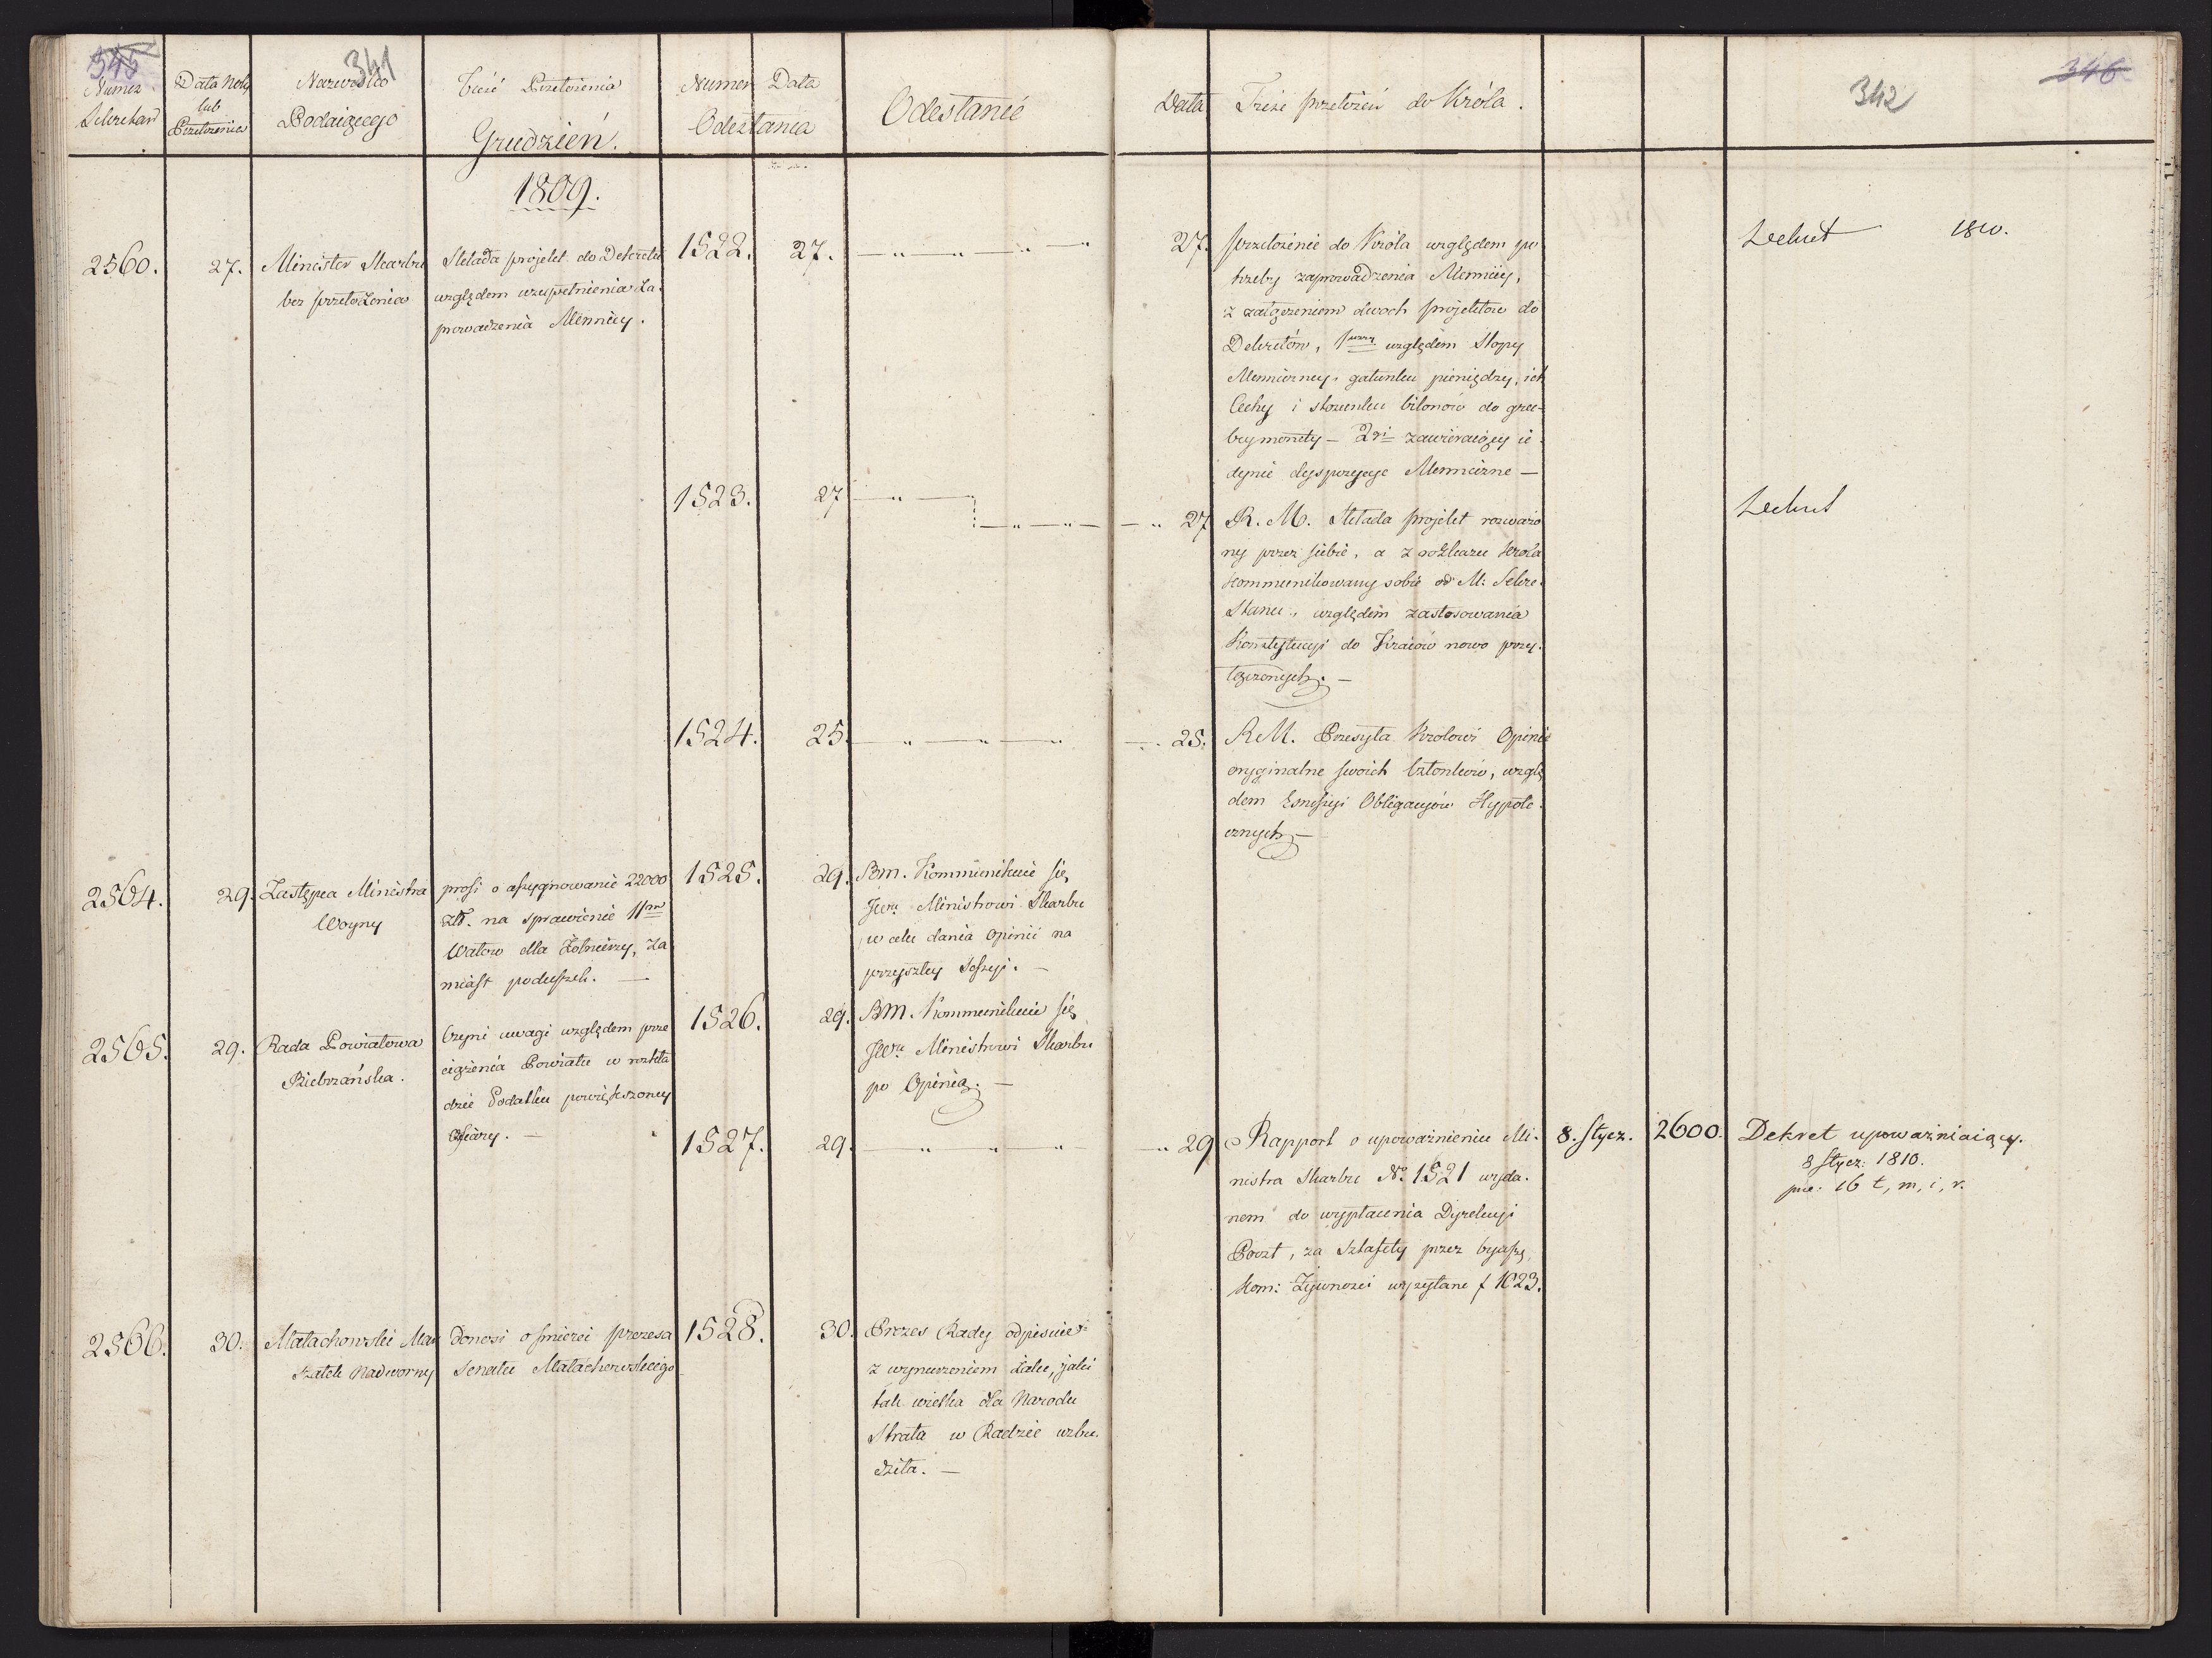 345
341
Numer
Sekretari
Data Noty
lub
Przełożenia
Nazwisko
Podaiącego
Treść Przełożenia
Grudzień.
Numer Data
Odesłania
Odesłanié
Data
Treść przełożeń do Króla.
342
346
1809.
2560.
27.
Minister Skarbu
bez przełożenia
Składa projekt do Dekretu
względem uzupełnienia Za-
prowadzenia Mennicy.
1522.
27.
27.
przełożenié do Króla względem po
trzeby zaprowadzenia Mennicy,
z załączeniem dwoch projektow do
Dekretów, 1wszy względem Stopy
Menniczney, gatunku pieniędzy, ich
Cechy i stosunku bilonów do gru-
bey monety — 2gi zawieraiący ie-
dynie dyspozycye Mennicze —
Dekret 1810.
1523.
27
27
R. M. Składa projekt rozważo
ny przez siebie, a z rozkazu Króla
kommunikowany sobie od M. Sekre.
Stanu, względem zastosowania
Konstytucyi do Kraiów nowo przy-
łączonych. —
Dekret
1524.
25.
25.
R M. Przesyła Krolowi Opinie
oryginalne swoich Członków, wzglę
dem Emissyi Obligacyów Hypote-
cznych —
2564.
29.
Zastępca Ministra
Woyny
prosi o assygnowanié 22000
złł. na sprawienie 11m
Wałow dla Żołnierzy, Za
miast poduszek. —
1525.
29.
Bm. Kommunikuie się
JWu Ministrowi Skarbu
w celu dania opinii na
przyszłey Sessyi. —
2565.
29.
Rada Powiatowa
Biebrzańska.
Czyni uwagi względem prze
ciążenia Powiatu w rozkła
dzie Podatku powiększoney
Ofiary. —
1526.
29.
BM. Kommunikuie się
JWu Ministrowi Skarbu
po Opinią. —
1527.
29.
29
Rapport o upoważnieniu Mi-
nistra Skarbu No. 1521 wyda-
nem do wypłacenia Dyrekcyi
Poczt, za Sztafety przez byłą
Kom: Żywnosci wysyłane f 1023.
8. Stycz.
2600.
Dekret upoważniaiący.
8 Stycz: 1810.
16 t, m, i, r.
2566.
30.
Małachowski Mar
szałek Nadworny
Donosi o śmierci prezesa
Senatu Małachowskiego
1528.
30.
Prezes Rady odpisuie
z wynurzeniem żalu, jaki
tak wielka dla Narodu
Strata w Radzie wzbu-
dziła. —